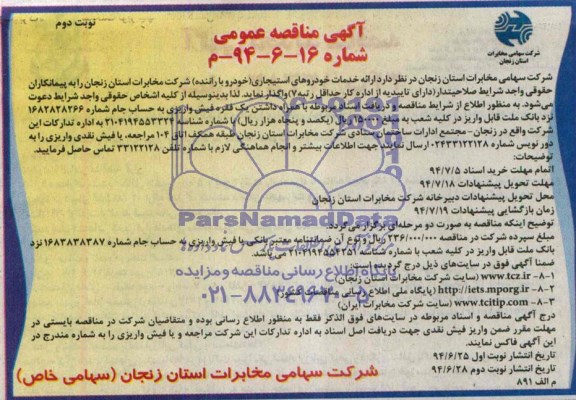 نوبت دوم
آگهی مناقصه عمومی
شماره ۱۶-۶-۹۴-م
شرکت سهامی مخابرات
استان زنجان
شرکت سهامی مخابرات استان زنجان در نظر دارد ارائه خدمات خودروهای استیجاری (خودرو با راننده) شرکت مخابرات استان زنجان را به پیمانکاران
حقوقی واجد شرایط صلاحیتدار (دارای تاییدیه از اداره کار حداقل رتبه ۷) واگذار نماید. لذا بدینوسیله از کلیه اشخاص حقوقی واجد شرایط دعوت
می‌شود. به منظور اطلاع از شرایط مناقصه و دریافت اسناد مربوطه با همراه داشتن یک فقره فیش واریزی به حساب جام شماره ۱۶۸۲۸۲۸۲۶۶
نزد بانک ملت قابل واریز در کلیه شعب به مبلغ ریال (یکصد و پنجاه هزار ریال) با شماره شناسه ۲۱۰۴۱۹۴۵۵۳۳۲۴ به اداره تدارکات این
شرکت واقع در زنجان - مجتمع ادارات ساختمان ستادی شرکت مخابرات استان زنجان طبقه همکف اتاق ۱۰۴ مراجعه، یا فیش نقدی واریزی را به
دور نویس شماره ۰۲۴۳۳۱۲۲۱۲۸ ارسال نمایند جهت اطلاعات بیشتر و انجام هماهنگی لازم با شماره تلفن ۳۳۱۲۲۱۲۸ تماس حاصل فرمایید.
توضیحات:
اتمام مهلت خرید اسناد ۹۴/۷/۵
مهلت تحویل پیشنهادات ۹۴/۷/۱۸
محل تحویل پیشنهادات دبیرخانه شرکت مخابرات استان زنجان
زمان بازگشایی پیشنهادات ۹۴/۷/۱۹
توضیح اینکه مناقصه به صورت دو مرحله‌ای برگزار می‌گردد.
مبلغ سپرده شرکت در مناقصه ۲۳۶/۰۰۰/۰۰۰ ریال و نوع آن ضمانتنامه معتبر بانکی یا فیش واریزی به حساب جام شماره ۱۶۸۳۸۳۸۳۸۷ نزد
بانک ملت قابل واریز در کلیه شعب با شماره شناسه ۲۱۰۲۱۹۴۵۵۴۲۵۱ می‌باشد
ضمنا آگهی فوق در سایت‌های ذیل درج گردیده است:
۸-۱- www.tcz.ir (سایت شرکت مخابرات استان زنجان)
۸-۲- http://iets.mporg.ir (پایگاه ملی اطلاع رسانی مناقصات کشور)
۸-۳- www.tcitip.com (سایت شرکت مخابرات ایران)
درج آگهی مناقصه و اسناد مربوطه در سایت‌های فوق الذکر فقط به منظور اطلاع رسانی بوده و متقاضیان شرکت در مناقصه بایستی در
مهلت مقرر ضمن واریز فیش نقدی جهت دریافت اصل اسناد به اداره تدارکات این شرکت مراجعه و یا فیش واریزی را به شماره مندرج در
این آگهی فاکس نمایند.
تاریخ انتشار نوبت اول ۹۴/۶/۲۵
تاریخ انتشار نوبت دوم ۹۴/۶/۲۸
م الف ۸۹۱
شرکت سهامی مخابرات استان زنجان (سهامی خاص)
ParsNamadData
پایگاه اطلاع رسانی مناقصه و مزایده
۰۲۱-۸۸۳۴۹۶۷۰-۵